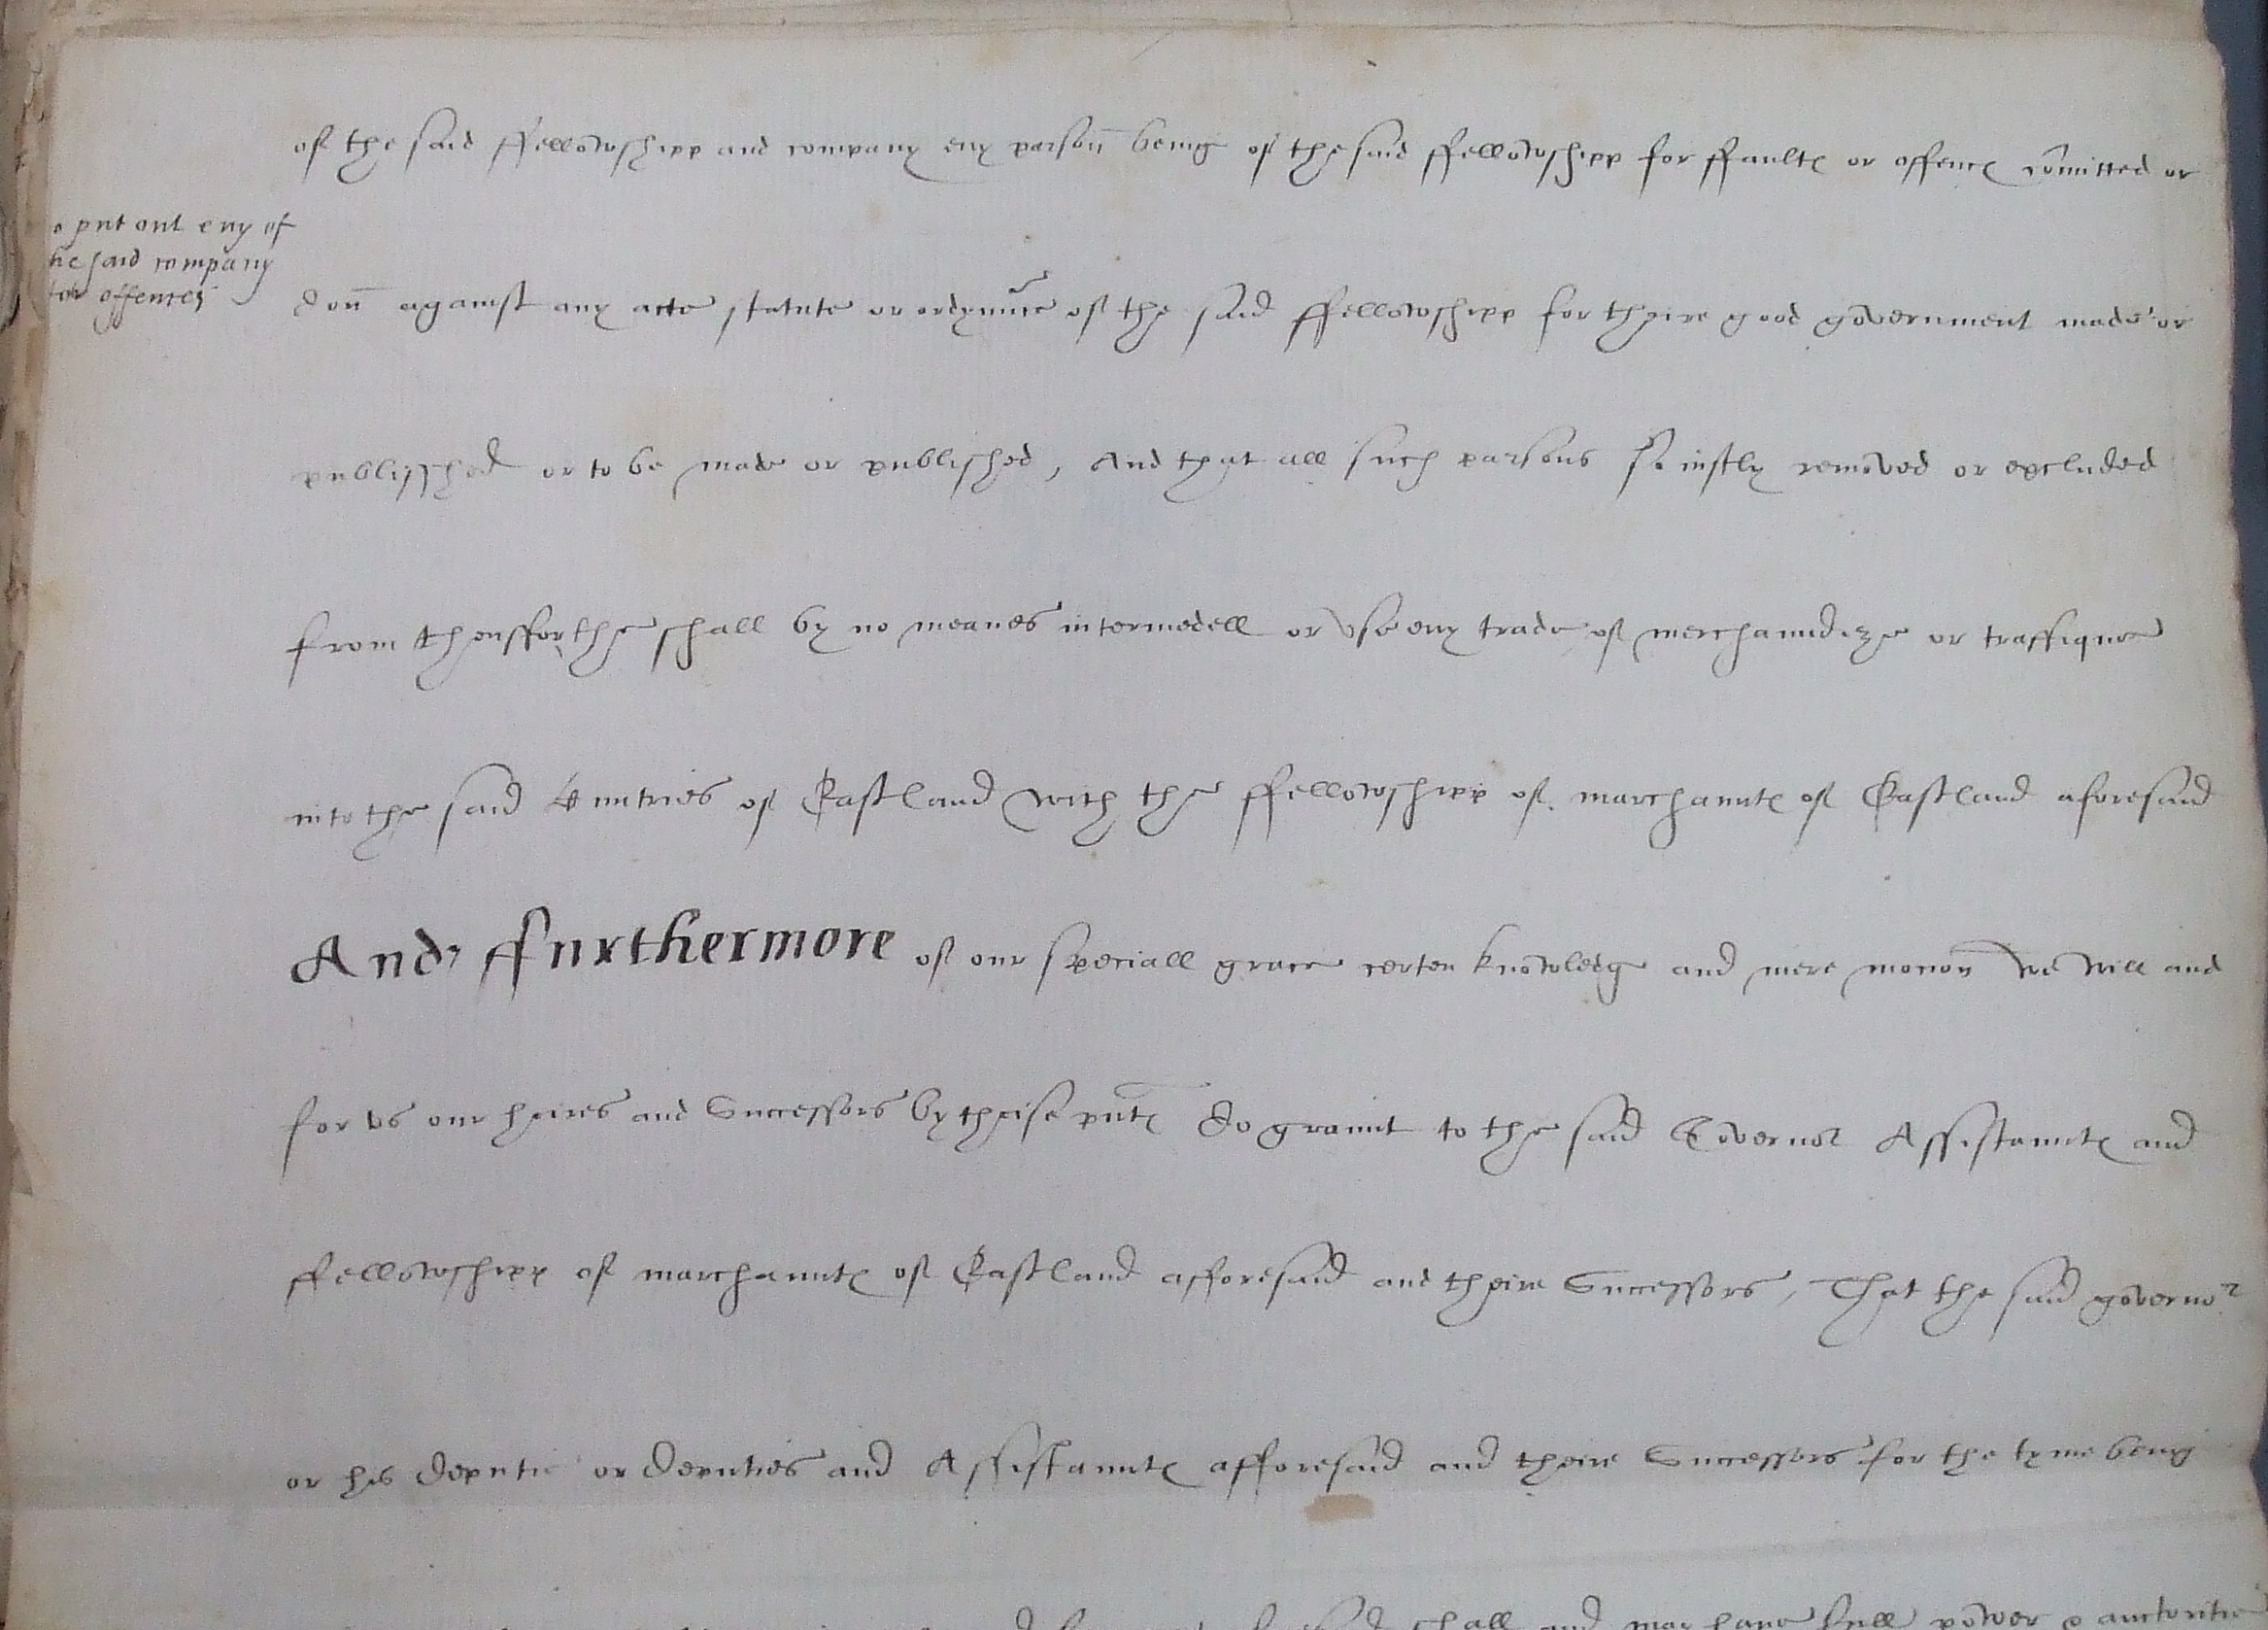 of the said ffellowshipp and company eny parson being of the said ffellowshipp for ffaultes or offences comitted or
put out eny of
he said company
for offences
don against any acte statute or ordynnce of the said ffellowshipp for theire good government made or
publisshed or to be made or published, And that all such parsons so iustly removed or excluded
from thensfforthe shall by no meanes intermedell or vse eny trade of merchaundize or traffique
into the said Cuntries of Eastland with the ffellowshipp of marchauntes of Eastland aforesaid
And ffurthermore of our speciall grace certen knowledg and mere mocion we will and
for vs our heires and Successors by theise pntes do graunt to the said Governor Assistauntes and
ffellowshipp of marchauntes of Eastland afforesaid and theire Successors, That the said governor
or his deputie or deputies and Assistauntes afforesaid and theire Successors for the tyme being
shall and may have full power & auctoritie